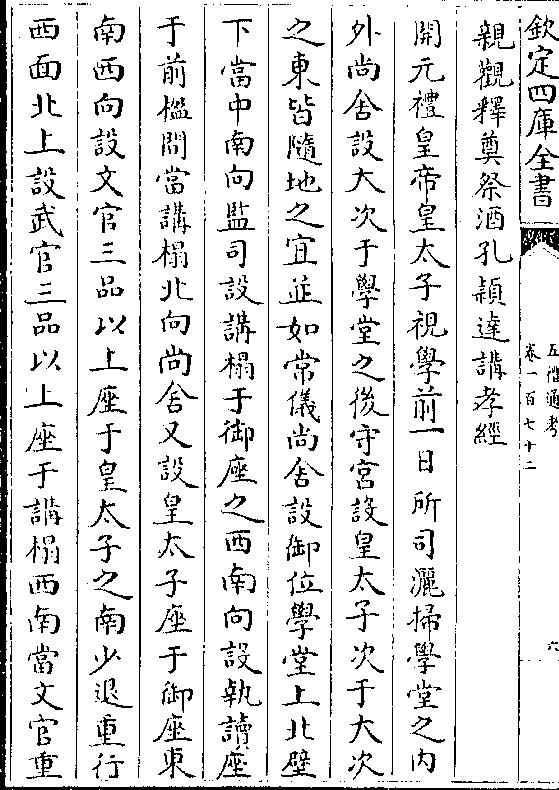 欽定四庫全書
五禮通考
卷一百七十二
六
親觀釋奠祭酒孔穎達講孝經
開元禮皇帝皇太子視學前一日所司灑掃學堂之內
外尚舍設大次于學堂之後守宮設皇太子次于大次
之東皆隨地之宜並如常儀尚舍設御位學堂上北壁
下當中南向監司設講榻于御座之西南向設執讀座
于前楹間當講榻北向尚舍又設皇太子座于御座東
南西向設文官三品以上座于皇太子之南少退重行
西面北上設武官三品以上座于講榻西南當文官重